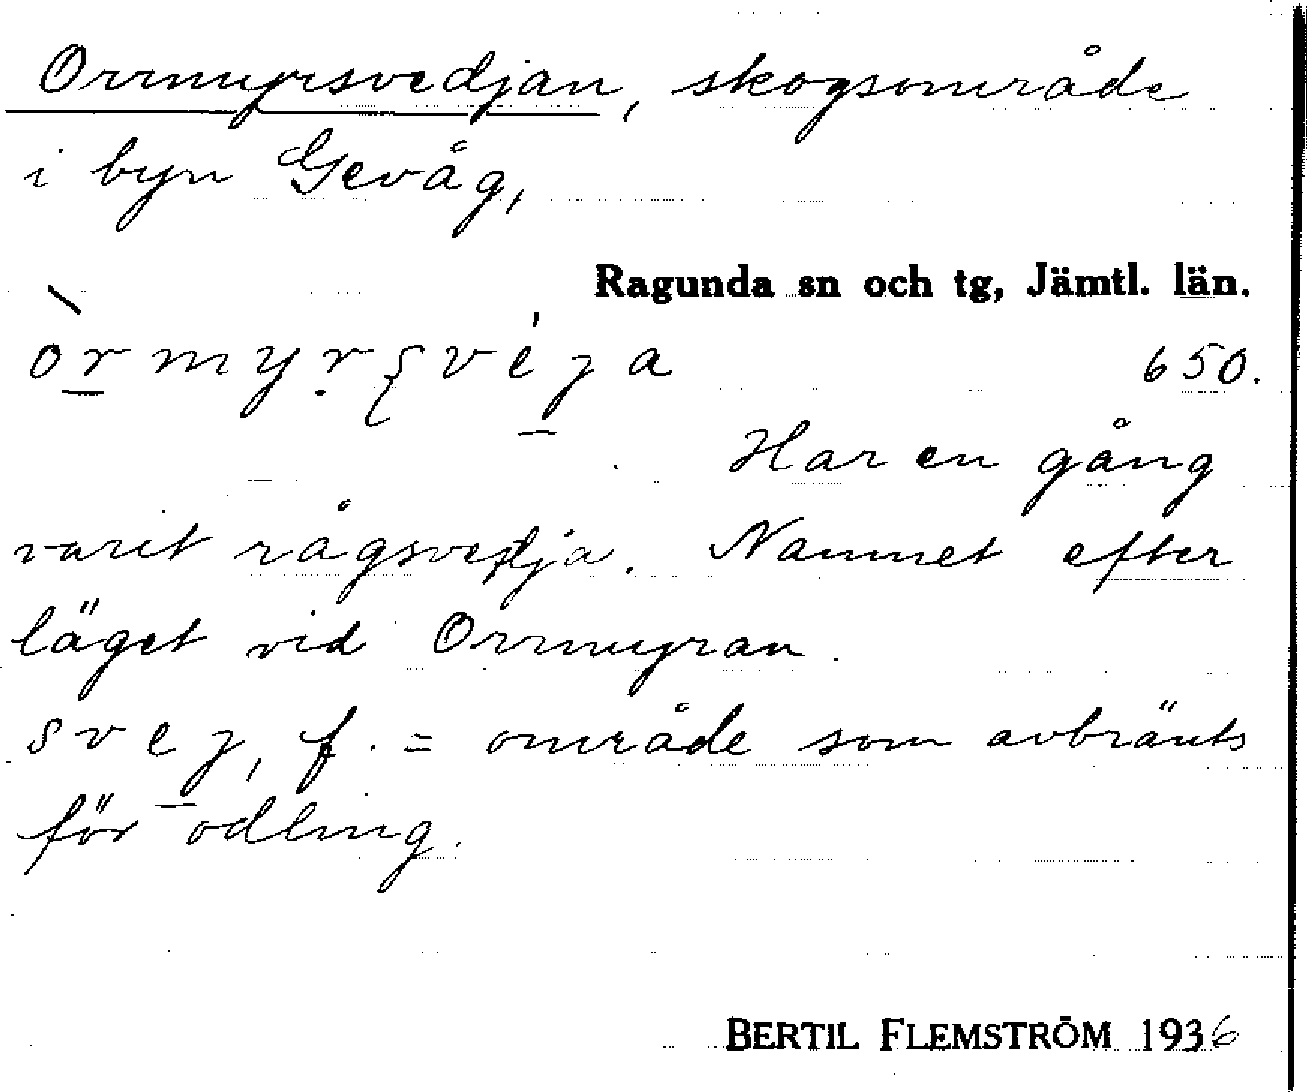 Orrmyrsvedjan, skogsområde
i byn Gevåg,
Ragunda sn och tg, Jämtl. län.
òr̲myṛʂvéȷ̲a 650.
Har en gång
varit rågsvedja. Namnet efter
läget vid Orrmyran.
sveȷ̲, f. = område som avbränts
för odling.
BERTIL FLEMSTRÖM 1936